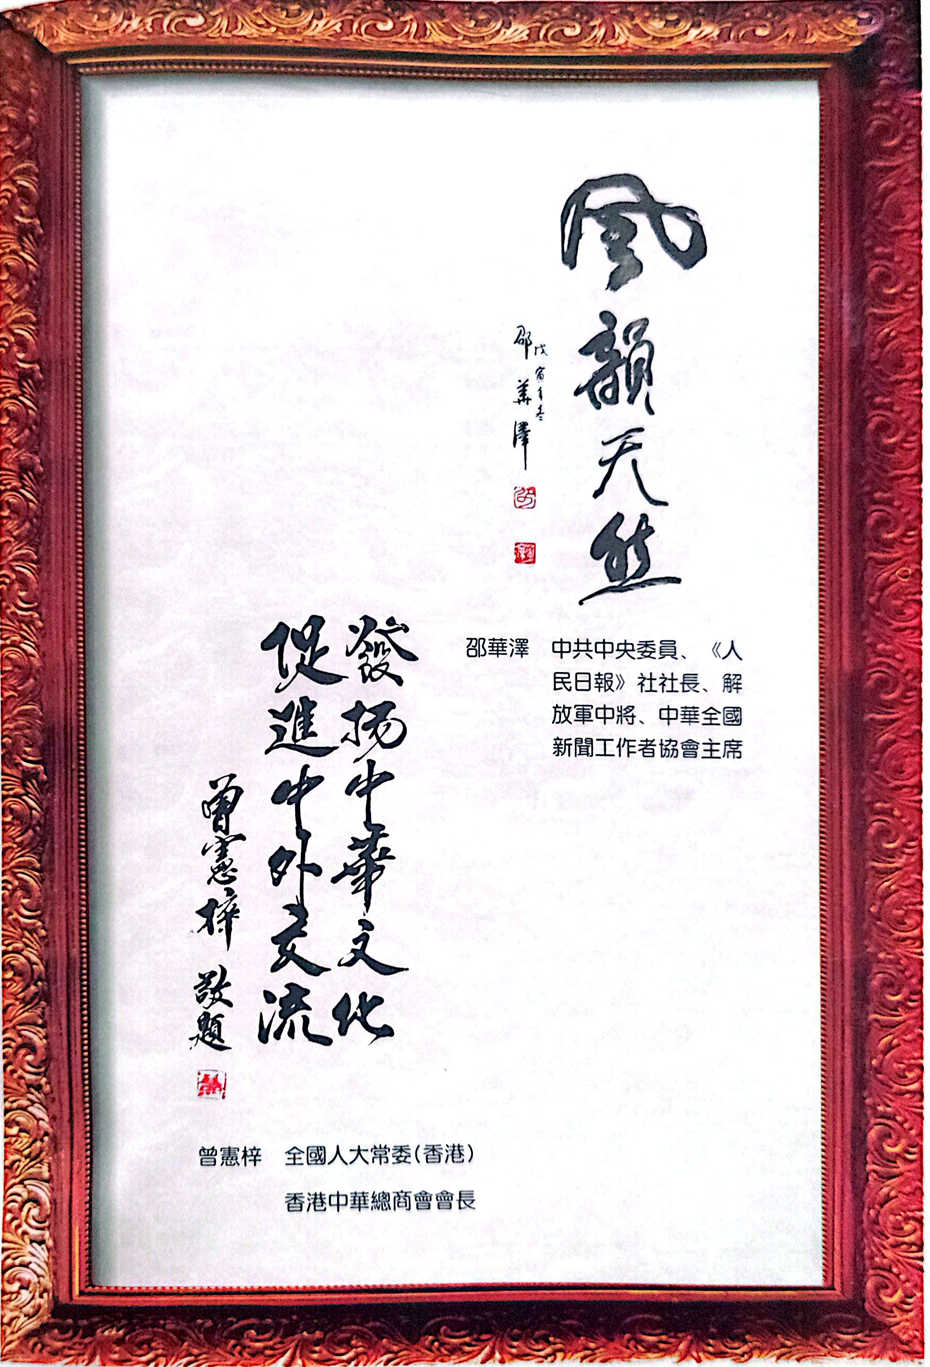 風韻天然
戊寅年冬
邵華澤
邵華澤　中共中央委員、《人
民日報》社社長、解
放軍中將、中華全國
新聞工作者協會主席
發揚中華文化
促進中外交流
曾憲梓　敬題
曾憲梓　全國人大常委(香港)
香港中華總商會會長